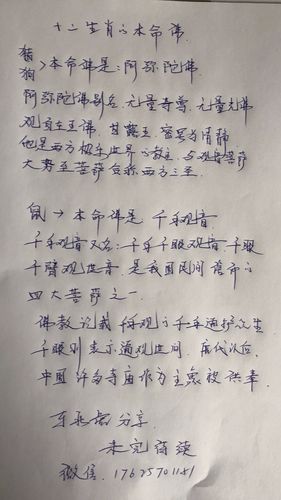 十二生肖的本命佛
猪
狗 > 本命佛是:阿弥陀佛
阿弥陀佛别名无量寿尊,无量光佛
观自在王佛,甘露王,密号为清静
他是西方极乐世界的教主,与观音菩萨
大势至菩萨合称西方三圣
鼠→本命佛是千手观音
千手观音又名:千手千眼观音 千眼
千臂观世音,是我国民间信仰的
四大菩萨之一.
佛教记载千手观音的千手遍护众生
千眼则表示遍观世间,唐代以后,
中国许多寺庙作为主像被供奉
分享
未完待续
微信.17675701151